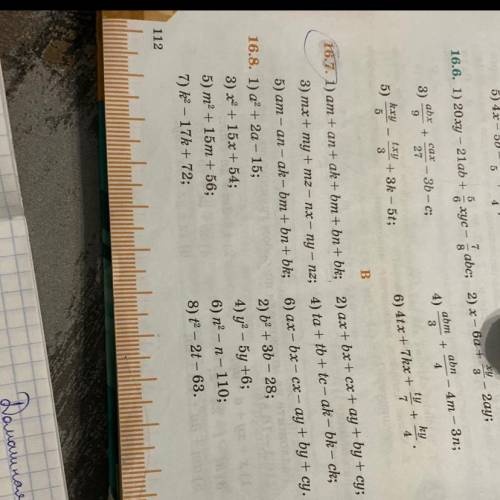 5) 4x
16.6. 1) 20xy − 21ab + 5/6 xyc − 7/8 abc; 2) x − 6a + xy/3 − 2ay;
3) abx/9 + cax/27 − 3b − c; 4) abm/3 + abn/4 − 4m − 3n;
5) kxy/5 − txy/3 + 3k − 5t; 6) 4tx + 7kx + ty/7 + ky/4.
В
16.7. 1) am + an + ak + bm + bn + bk; 2) ax + bx + cx + ay + by + cy;
3) mx + my + mz − nx − ny − nz; 4) ta + tb + tc − ak − bk − ck;
5) am − an − ak − bm + bn + bk; 6) ax − bx − cx − ay + by + cy.
16.8. 1) a² + 2a − 15; 2) b² + 3b − 28;
3) x² + 15x + 54; 4) y² − 5y + 6;
5) m² + 15m + 56; 6) n² − n − 110;
7) k² − 17k + 72; 8) t² − 2t − 63.
112
Домашная